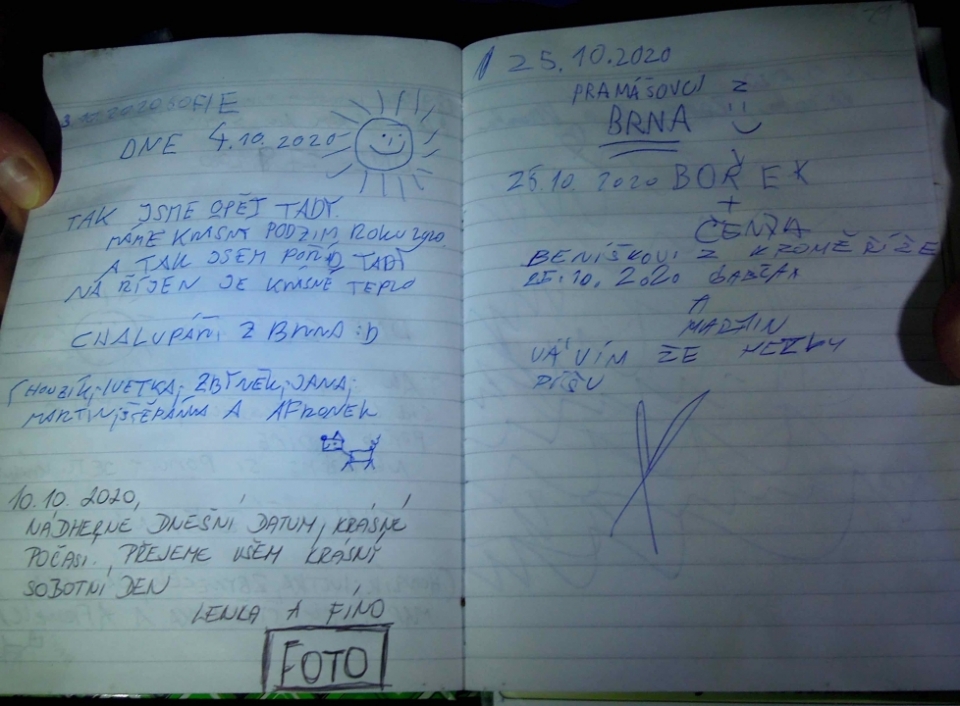 3.10.2020 SOFIE
DNE 4.10.2020
TAK JSME OPĚT TADY.
MÁME KRÁSNÝ PODZIM ROKU 2020
A TAK JSEM POŘÁD TADY
NA ŘÍJEN JE KRÁSNĚ TEPLO
CHALUPÁŘI Z BRNA :D
HOUZÍK, IVETKA, ZBYNĚK, JANA,
MARTIN, ŠTĚPÁNKA A AFRONEK
10.10.2020,
NÁDHERNÉ DNEŠNÍ DATUM, KRÁSNÉ
POČASÍ. PŘEJEME VŠEM KRÁSNÝ
SOBOTNÍ DEN
LENKA A FÍNO
FOTO
25.10.2020
PRAMÁŠOVCI Z
BRNA
25.10.2020 BOŘEK
+
ČENDA
BENÍŠKOVI Z KROMĚŘÍŽE
25.10.2020
A
MARTIN
VÁ VÍM ŽE HEZKY
PÍŠU